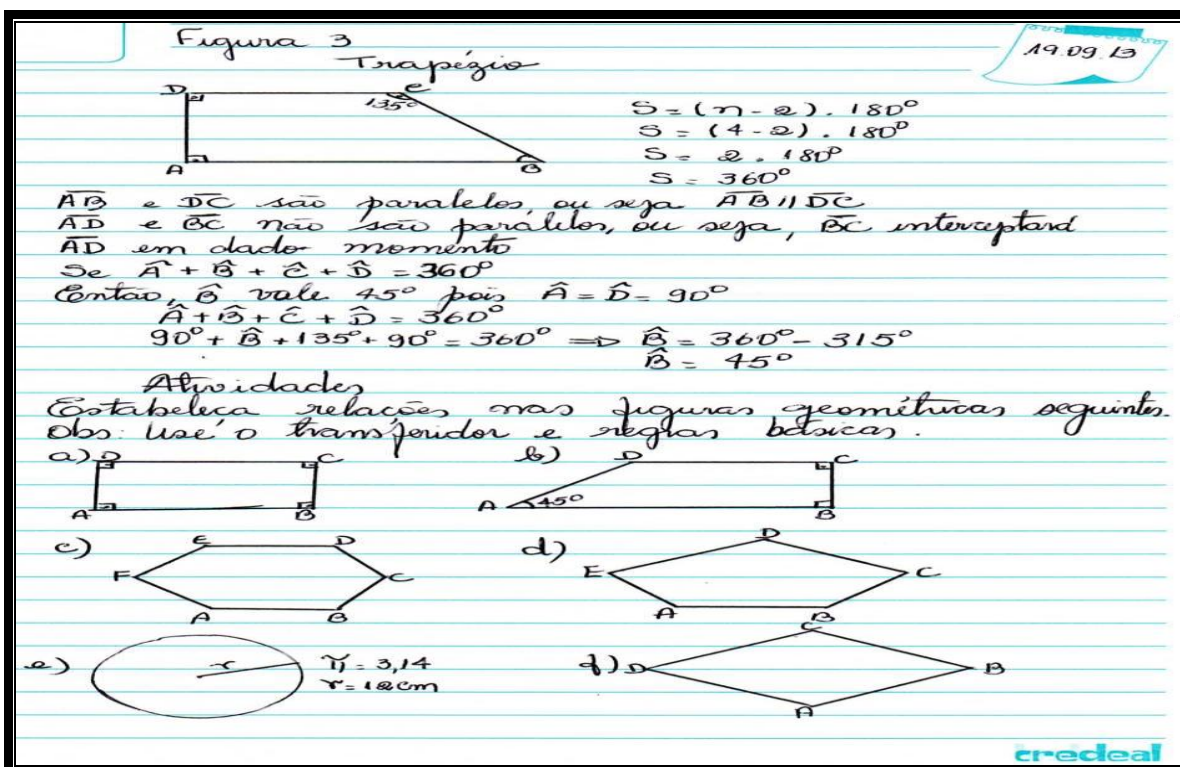 Figura 3
19.09.13
Trapézio
D C
135°
A B
S = (n - 2) . 180°
S = (4 - 2) . 180°
S = 2 . 180°
S = 360°
AB e DC são paralelos, ou seja AB // DC
AD e BC não são parálelos, ou seja, BC interceptará
AD em dado momento
Se Â + B̂ + Ĉ + D̂ = 360°
Então, B̂ vale 45° pois Â = D̂ = 90°
Â + B̂ + Ĉ + D̂ = 360°
90° + B̂ + 135° + 90° = 360° => B̂ = 360° - 315°
B̂ = 45°
Atividades
Estabeleca relações nas figuras geométricas seguintes.
Obs: Use o transferidor e reglas básicas.
a) D C
A B
b) D C
A 45° B
c) E D
F C
A B
d) D
E C
A B
e) r π = 3,14
r = 12cm
f) C
D B
A
credeal